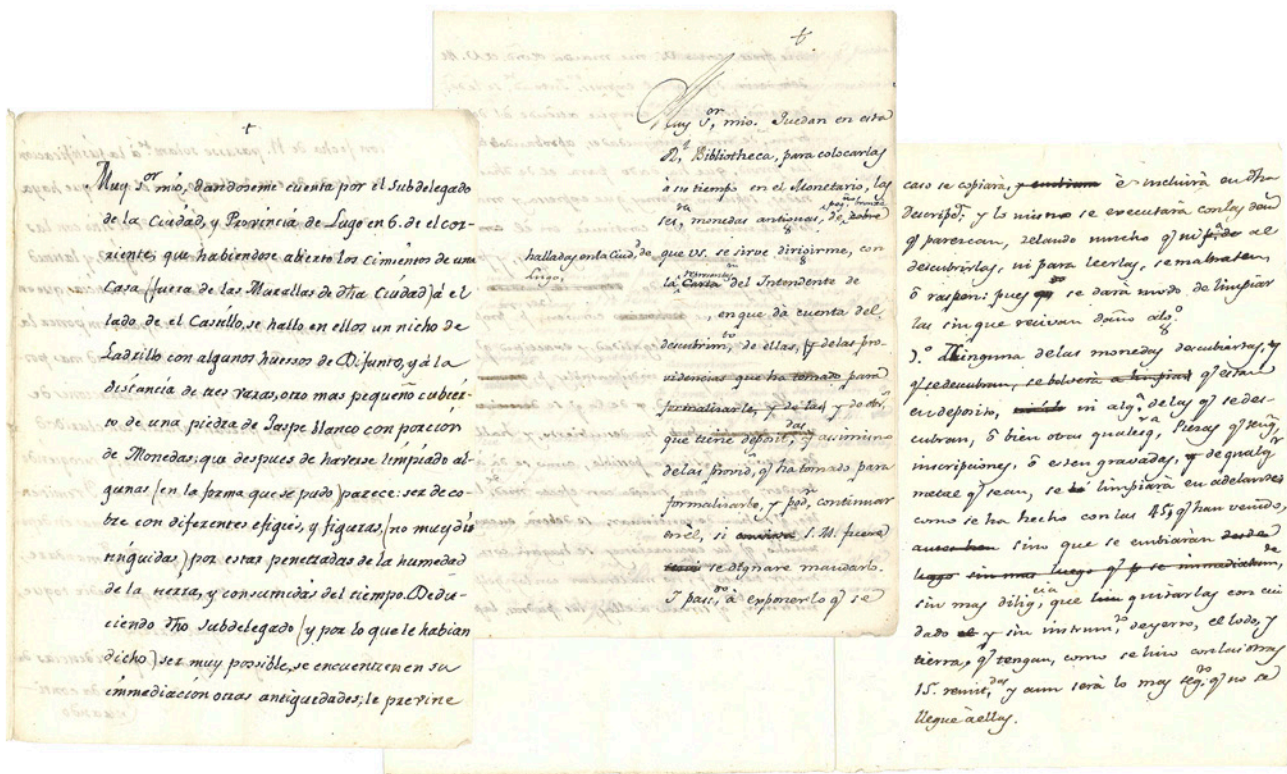 +
Muy S.or mío, dandoseme cuenta por el Subdelegado
de la Ciudad, y Provincia de Lugo en 6. de el cor-
riente; que habiendose abierto los cimientos de una
Casa (fuera de las Murallas de dha Ciudad) á el
lado de el Castillo, se hallo en ellos un nicho de
Ladrillo con algunos huessos de Difunto, y á la
distancia de tres varas, otro mas pequeño cubier-
to de una piedra de Jaspe blanco con porcion
de Monedas; que despues de haverse limpiado al-
gunas (en la forma que se pudo) parece: ser de co-
bre con diferentes efigies, y figuras, (no muy dis
tinguidas) por estar penetradas de la humedad
de la tierra, y consumidas del tiempo. Dedu-
ciendo dho Subdelegado (y por lo que le habian
dicho) ser muy possible, se encuentren en su
immediación otras antiguedades; le previne
+
Muy S.or mio. Quedan en esta
R.l Bibliotheca, para colocarlas
a su tiempo en el Monetario, las
seis monedas antiguas, de cobre
halladas en la Ciud.d de Lugo, que VS. se sirve dirigirme, con
la Carta del Intendente de
, en que dà cuenta del
descubrim.to de ellas, y de las pro-
videncias que ha tomado para
formalizarlo, y de las y de otras
que tiene deposit.das y assimismo
delas provid.s q.e ha tomado para
formalizarlo, y pod.r continuar
en èl, si S. M. fuere
se dignare mandarlo.
I pass.do à exponerlo q.e se
caso se copiarà, è incluirà en dha
descripc.n; y lo mismo se executarà con las demas
q.e parezcan, zelando mucho q.e ni al
descubrirlas, ni para leerlas, se maltraten,
ò raspen: pues se darà modo de limpiar
las sin que recivan daño alg.o
3.o Ninguna de las monedas descubiertas, y
q.e se descubran, se bolverà a limpiar q.e estan
en deposito, ni alg.a delas q.e se des-
cubran, ò bien otras qualesq.a Piezas q.e teng.n
inscripciones, ò esten gravadas, y de qualq.r
metal q.e sean, se limpiarà en adelante
como se ha hecho con las 45, q.e han venido,
sino que se embiaràn desde
luego sin mas luego q.e se immediatam.te
sin mas dilig.cia que quitarlas con cui
dado y sin instrum.to de yerro, el lodo, y
tierra, q.e tengan, como se hizo con las otras
15. remit.das y aun serà lo mas seg.ro q.e no se
llegue à ellas.